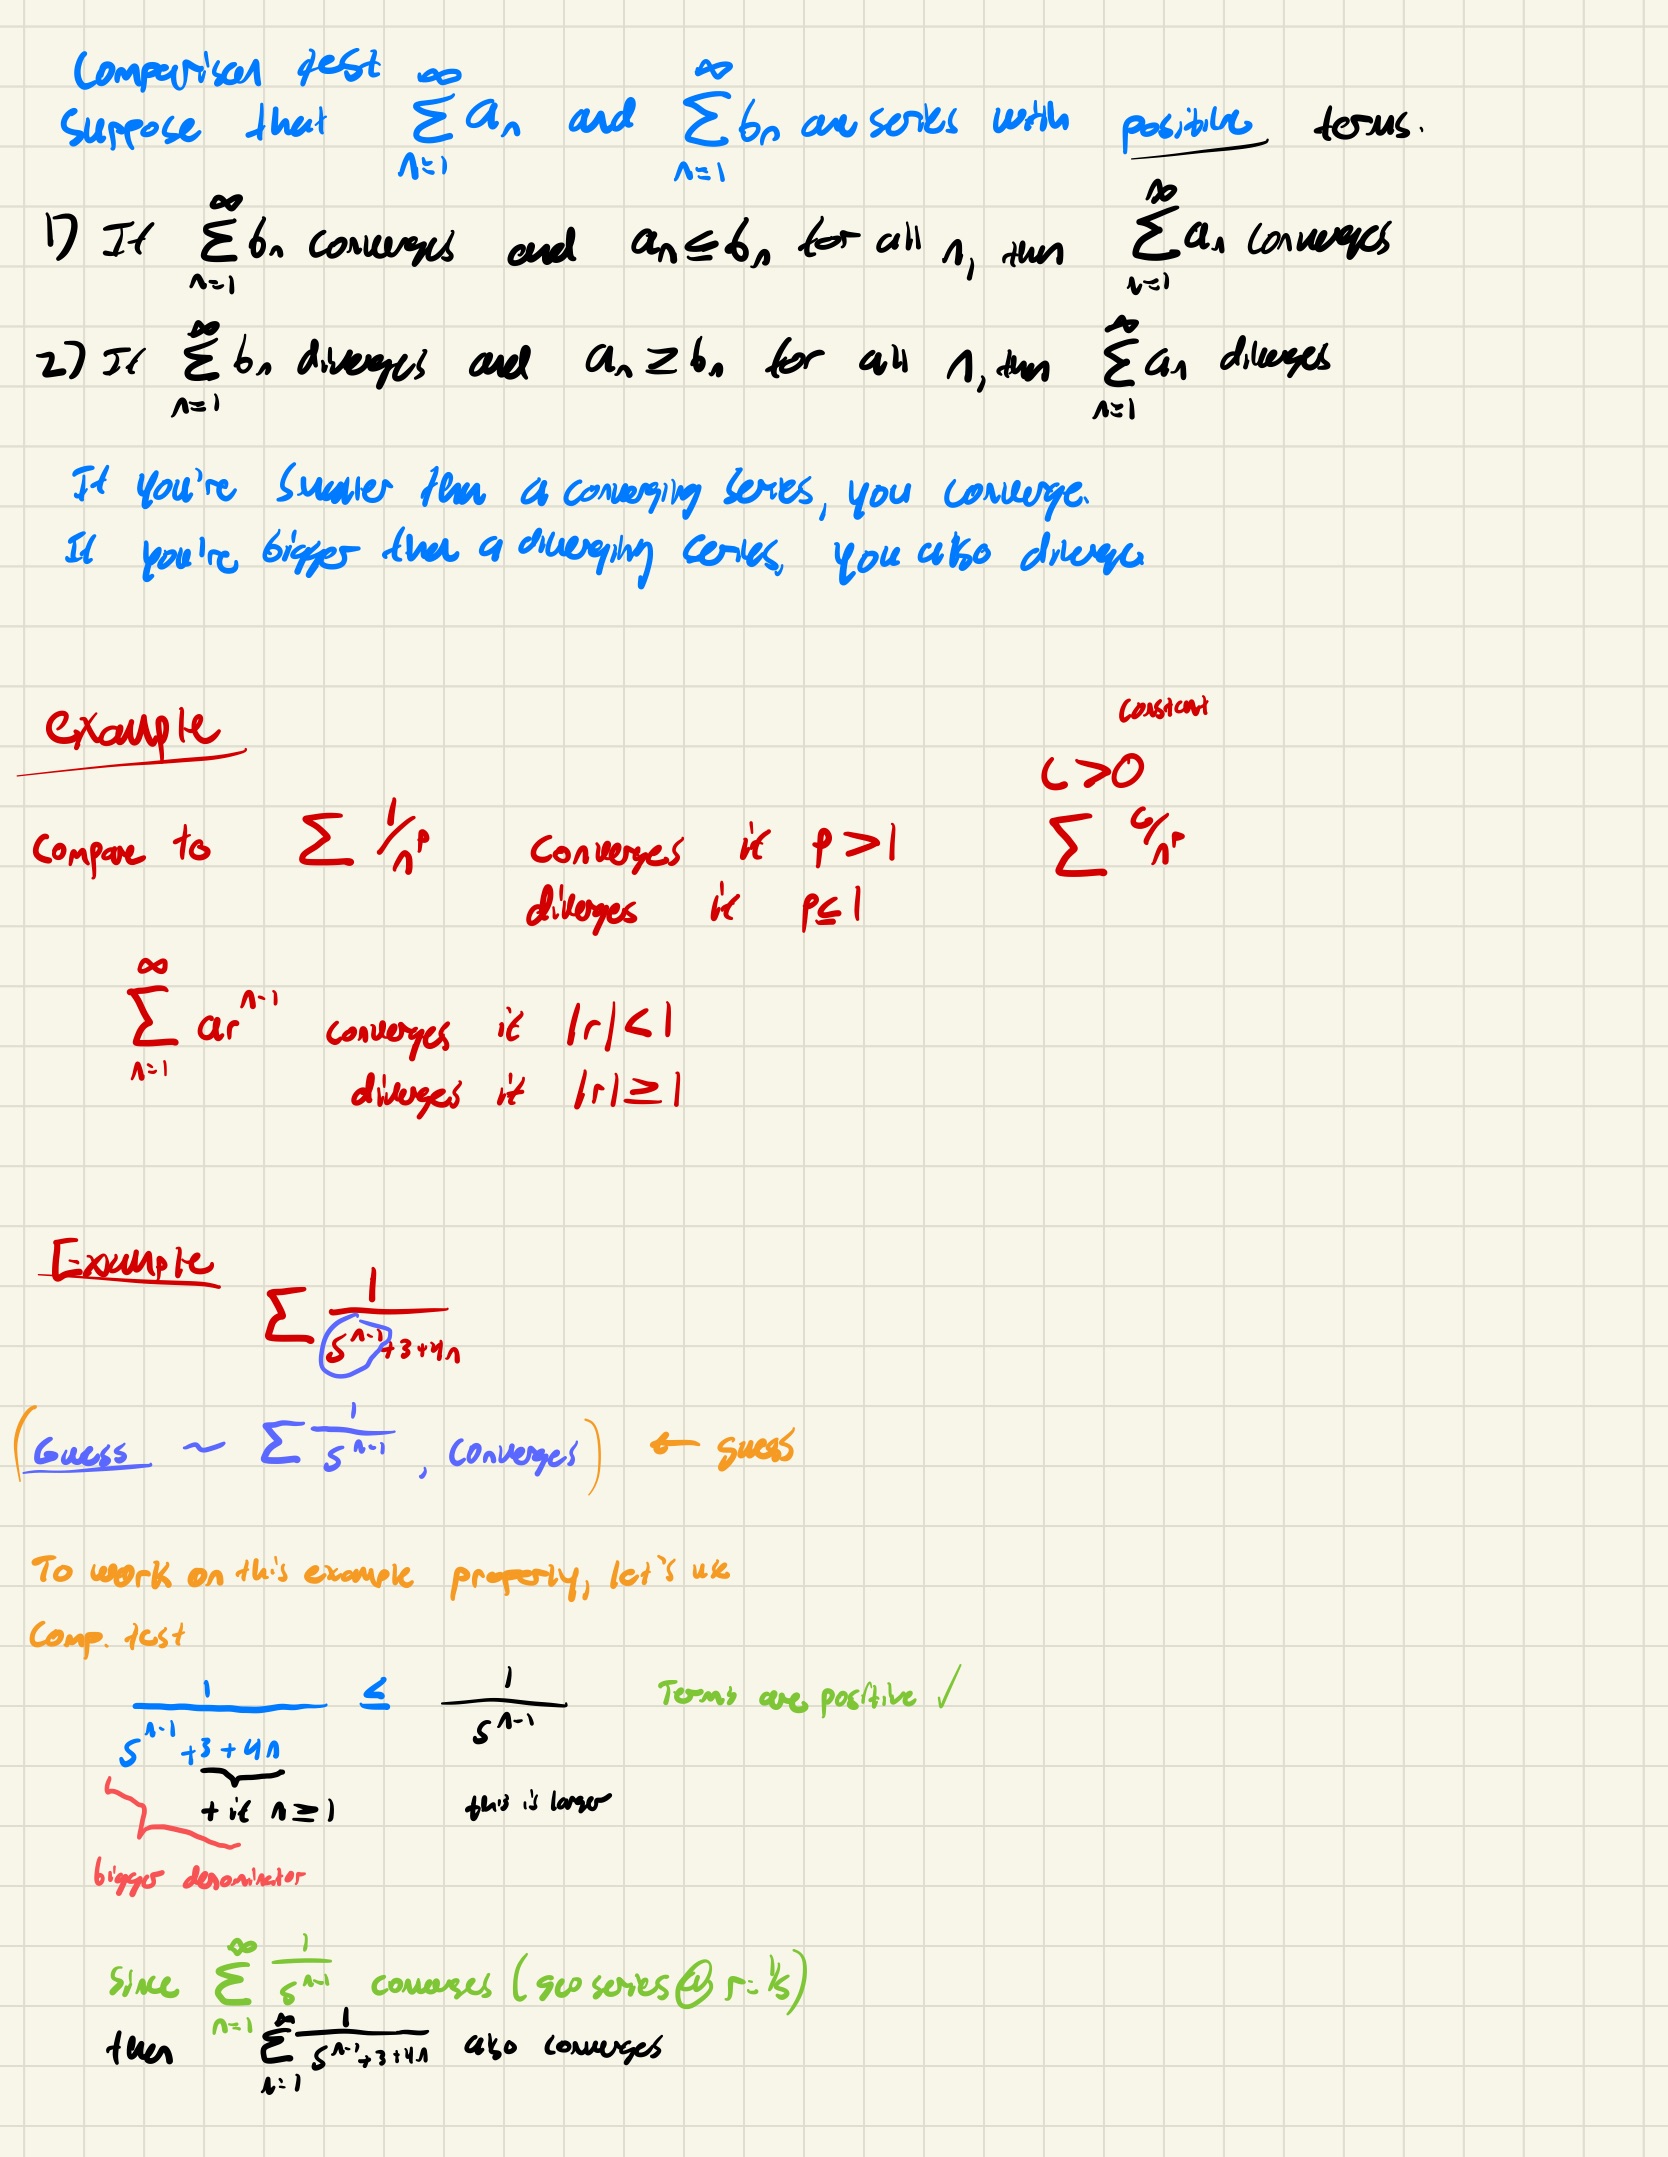 Comparison test
Suppose that ∑_{n=1}^{∞} a_n and ∑_{n=1}^{∞} b_n are series with positive terms.
1) If ∑_{n=1}^{∞} b_n converges and a_n ≤ b_n for all n, then ∑_{n=1}^{∞} a_n converges
2) If ∑_{n=1}^{∞} b_n diverges and a_n ≥ b_n for all n, then ∑_{n=1}^{∞} a_n diverges
If you're smaller than a converging series, you converge.
If you're bigger then a diverging series, you also diverge
example
constant
c > 0
Compare to ∑ 1/n^p converges if p > 1 ∑ c/n^p
diverges if p ≤ 1
∑_{n=1}^{∞} ar^{n-1} converges if |r| < 1
diverges if |r| ≥ 1
Example
∑ 1/(5^{n-1}+3+4n)
(Guess ~ ∑ 1/5^{n-1}, converges) ← guess
To work on this example properly, let's use
Comp. test
1/(5^{n-1}+3+4n) ≤ 1/5^{n-1} Terms are positive ✓
+ if n ≥ 1 this is larger
bigger denominator
Since ∑_{n=1}^{∞} 1/5^{n-1} converges (geo series @ r = 1/5)
then ∑_{n=1}^{∞} 1/(5^{n-1}+3+4n) also converges